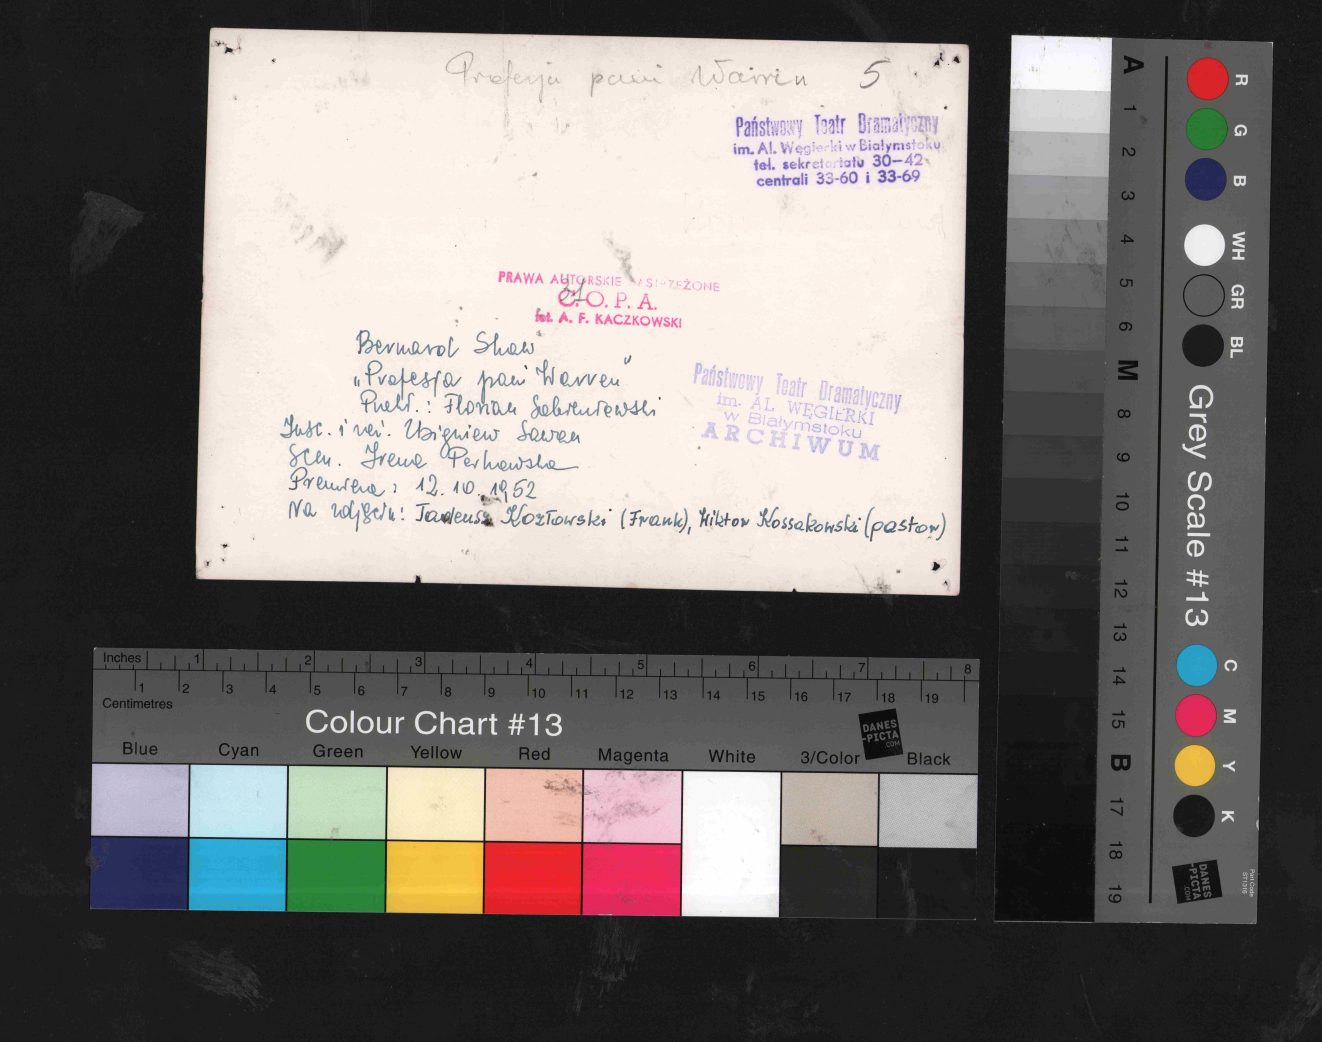 Profesja pani Warren 5
Państwowy Teatr Dramatyczny
im. Al. Węgierki w Białymstoku
tel. sekretariatu 30-42
centrali 33-60 i 33-69
PRAWA AUTORSKIE ZASTRZEŻONE
C.O.P.A.
fot. A. F. KACZKOWSKI
Bernard Shaw
„Profesja pani Warren"
Przekł.: Florian Sobieniewski
Insc. i reż. Zbigniew Sawan
Scen. Irena Perkowska
Premiera: 12.10.1952
Na zdjęciu: Tadeusz Kozłowski (Frank), Wiktor Kossakowski (pastor)
Państwowy Teatr Dramatyczny
im. AL. WĘGIERKI
w Białymstoku
ARCHIWUM
Inches 1 2 3 4 5 6 7 8
1 2 3 4 5 6 7 8 9 10 11 12 13 14 15 16 17 18 19
Centimetres
Colour Chart #13
DANES
-PICTA
.COM
Blue Cyan Green Yellow Red Magenta White 3/Color Black
A 1 2 3 4 5 6 M 8 9 10 11 12 13 14 15 B 17 18 19
R G B WH GR BL
Grey Scale #13
C M Y K
DANES
-PICTA
.COM